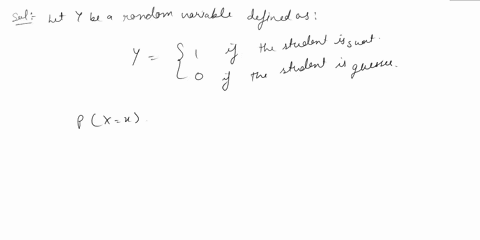 Sol:- Let Y be a random variable defined as:
Y = { 1 if the student is
0 if the student is guesser.
P(X=x).